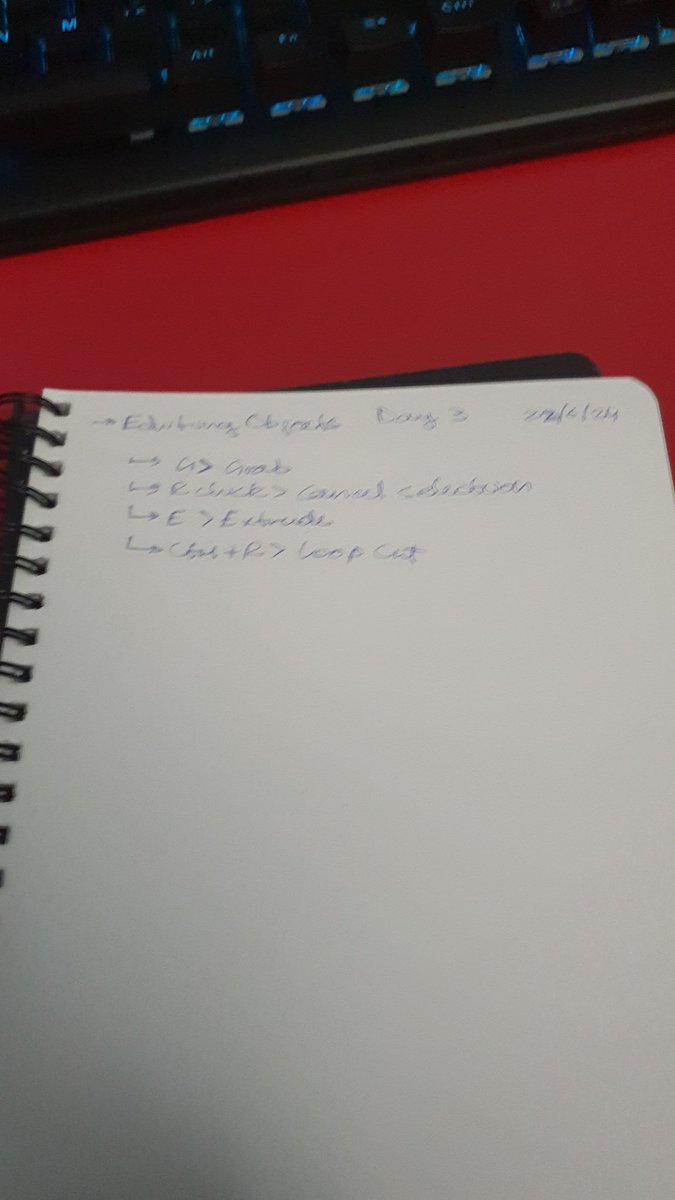 M
Alt
Fn
Ctrl
→ Editing Objects Day 3
↳ G > Grab
↳ R click > Cancel selection
↳ E > Extrude
↳ Ctrl + R > Loop Cut